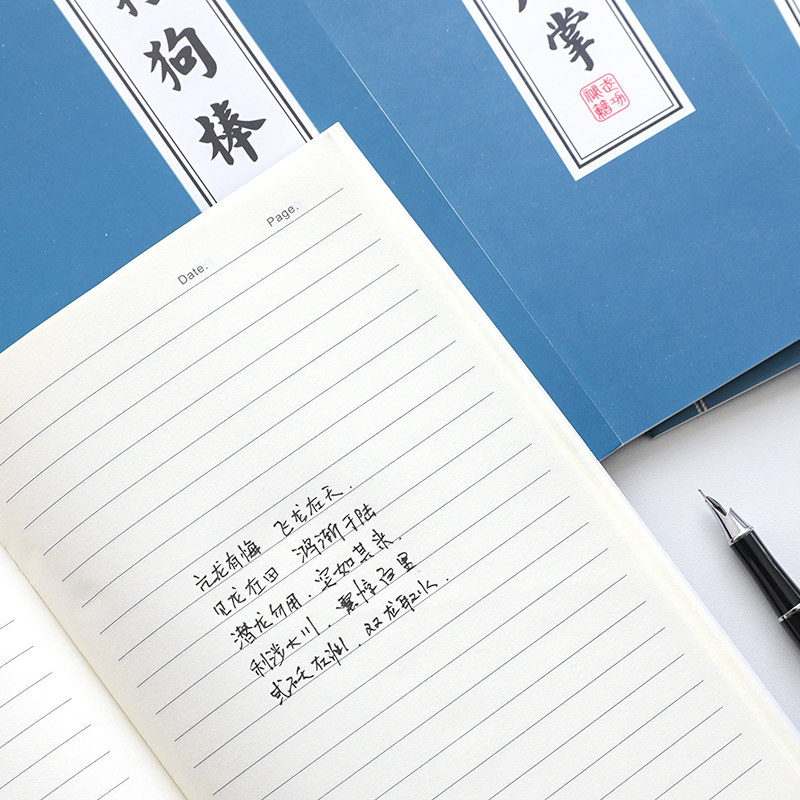 狗棒
掌
武功
秘籍
Date. Page.
亢龙有悔 飞龙在天.
见龙在田 鸿渐于陆
潜龙勿用. 突如其来.
利涉大川. 震惊百里
或跃在渊. 双龙取水.